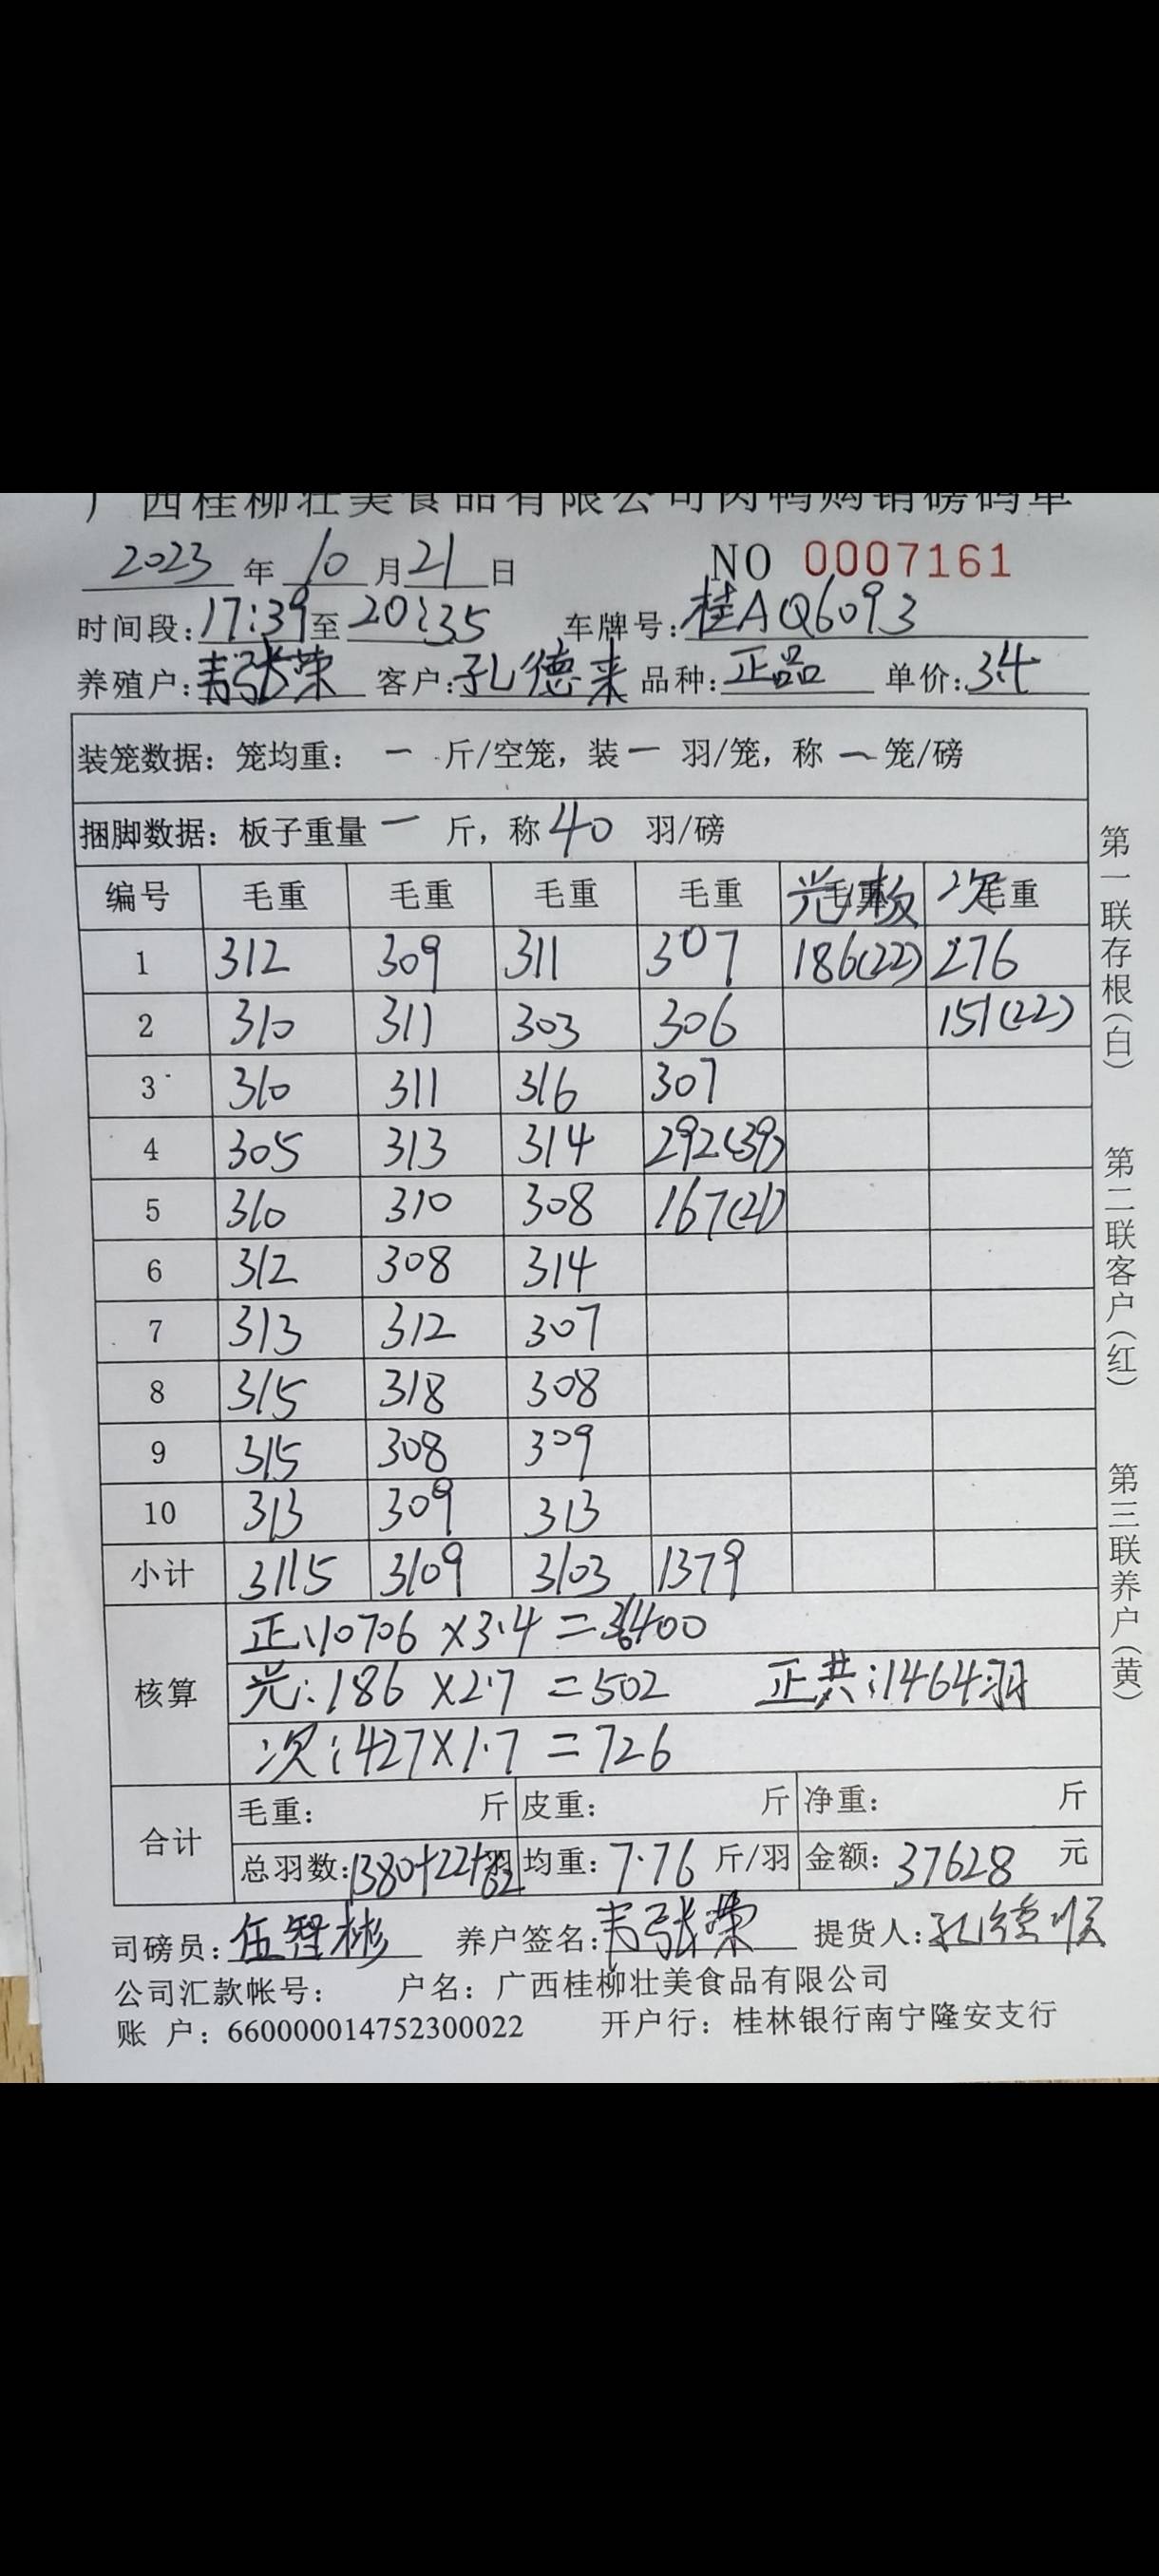 广西桂柳壮美食品有限公司肉鸭购销磅码单
2023 年 10 月 21 日 NO 0007161
时间段:17:39至20:35 车牌号:桂AQ6093
养殖户:韦张荣 客户:孔德来 品种:正品 单价:3.4
装笼数据: 笼均重: 一 斤/空笼, 装 一 羽/笼, 称 一 笼/磅
捆脚数据: 板子重量 一 斤, 称 40 羽/磅
编号 毛重 毛重 毛重 毛重 光板 次 毛重
1 312 309 311 307 186(22) 276
2 310 311 303 306 151(22)
3 310 311 316 307
4 305 313 314 292(39)
5 310 310 308 167(21)
6 312 308 314
7 313 312 307
8 315 318 308
9 315 308 309
10 313 309 313
小计 3115 3109 3103 1379
正:10706 ×3.4 =36400
核算 光:186 ×2.7 =502 正共:1464羽
次:427×1.7 =726
合计 毛重: 斤 皮重: 斤 净重: 斤
总羽数:1380+22+62 羽 均重:7.76 斤/羽 金额:37628 元
司磅员:伍智彬 养户签名:韦张荣 提货人:孔德顺
公司汇款帐号: 户名: 广西桂柳壮美食品有限公司
账 户: 660000014752300022 开户行: 桂林银行南宁隆安支行
第一联存根(白) 第二联客户(红) 第三联养户(黄)